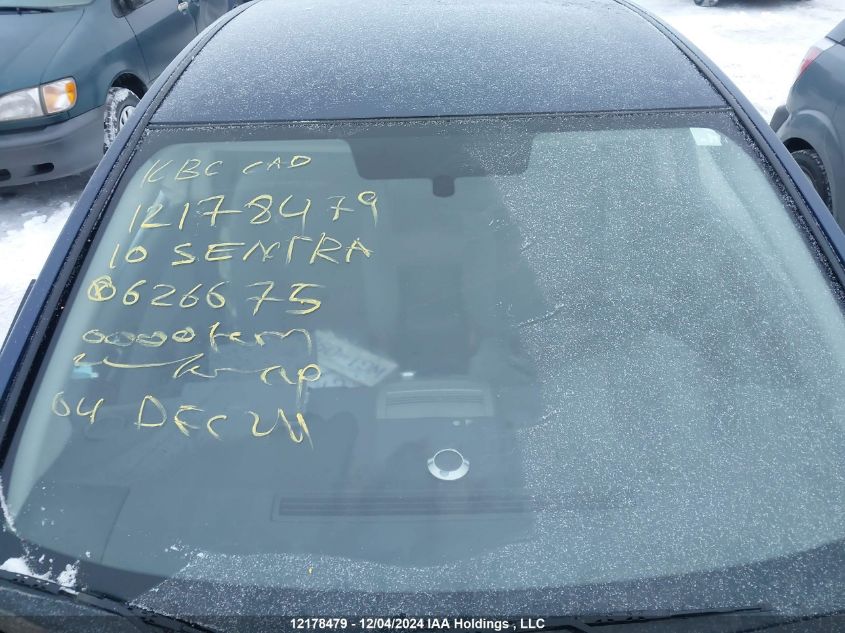 KBC CAD
12178479
10 SENTRA
626675
0000km
04 DEC 24
12178479 - 12/04/2024 IAA Holdings , LLC